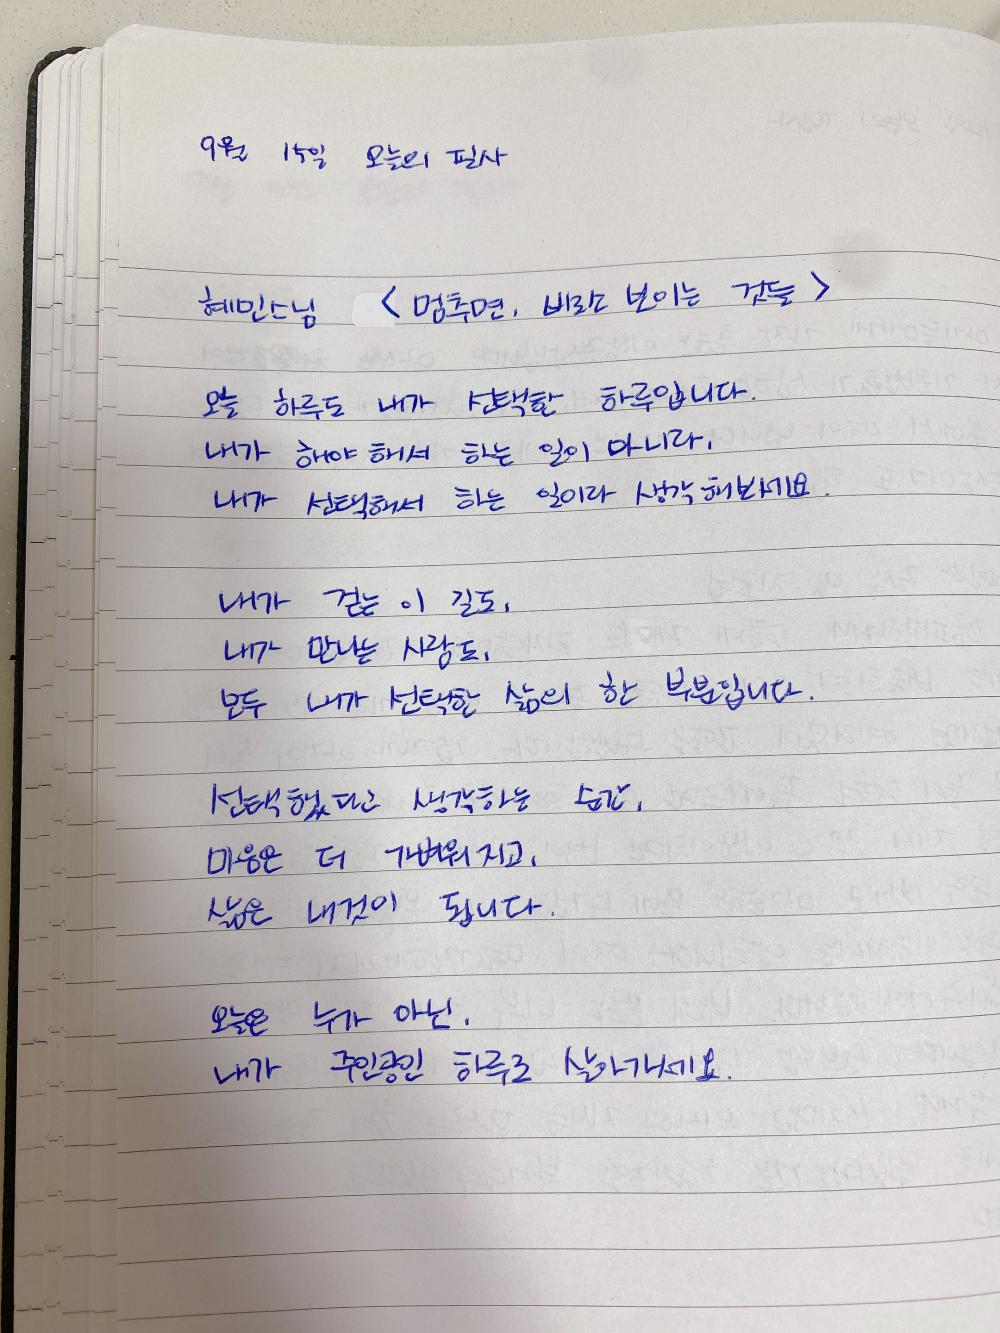 9월 15일 오늘의 필사
혜민스님 <멈추면, 비로소 보이는 것들>
오늘 하루도 내가 선택한 하루입니다.
내가 해야해서 하는 일이 아니라,
내가 선택해서 하는 일이라 생각해보세요.
내가 걷는 이 길도,
내가 만나는 사람도,
모두 내가 선택한 삶의 한 부분입니다.
선택했다고 생각하는 순간,
마음은 더 가벼워지고,
삶은 내것이 됩니다.
오늘은 누가 아닌,
내가 주인공인 하루로 살아가세요.